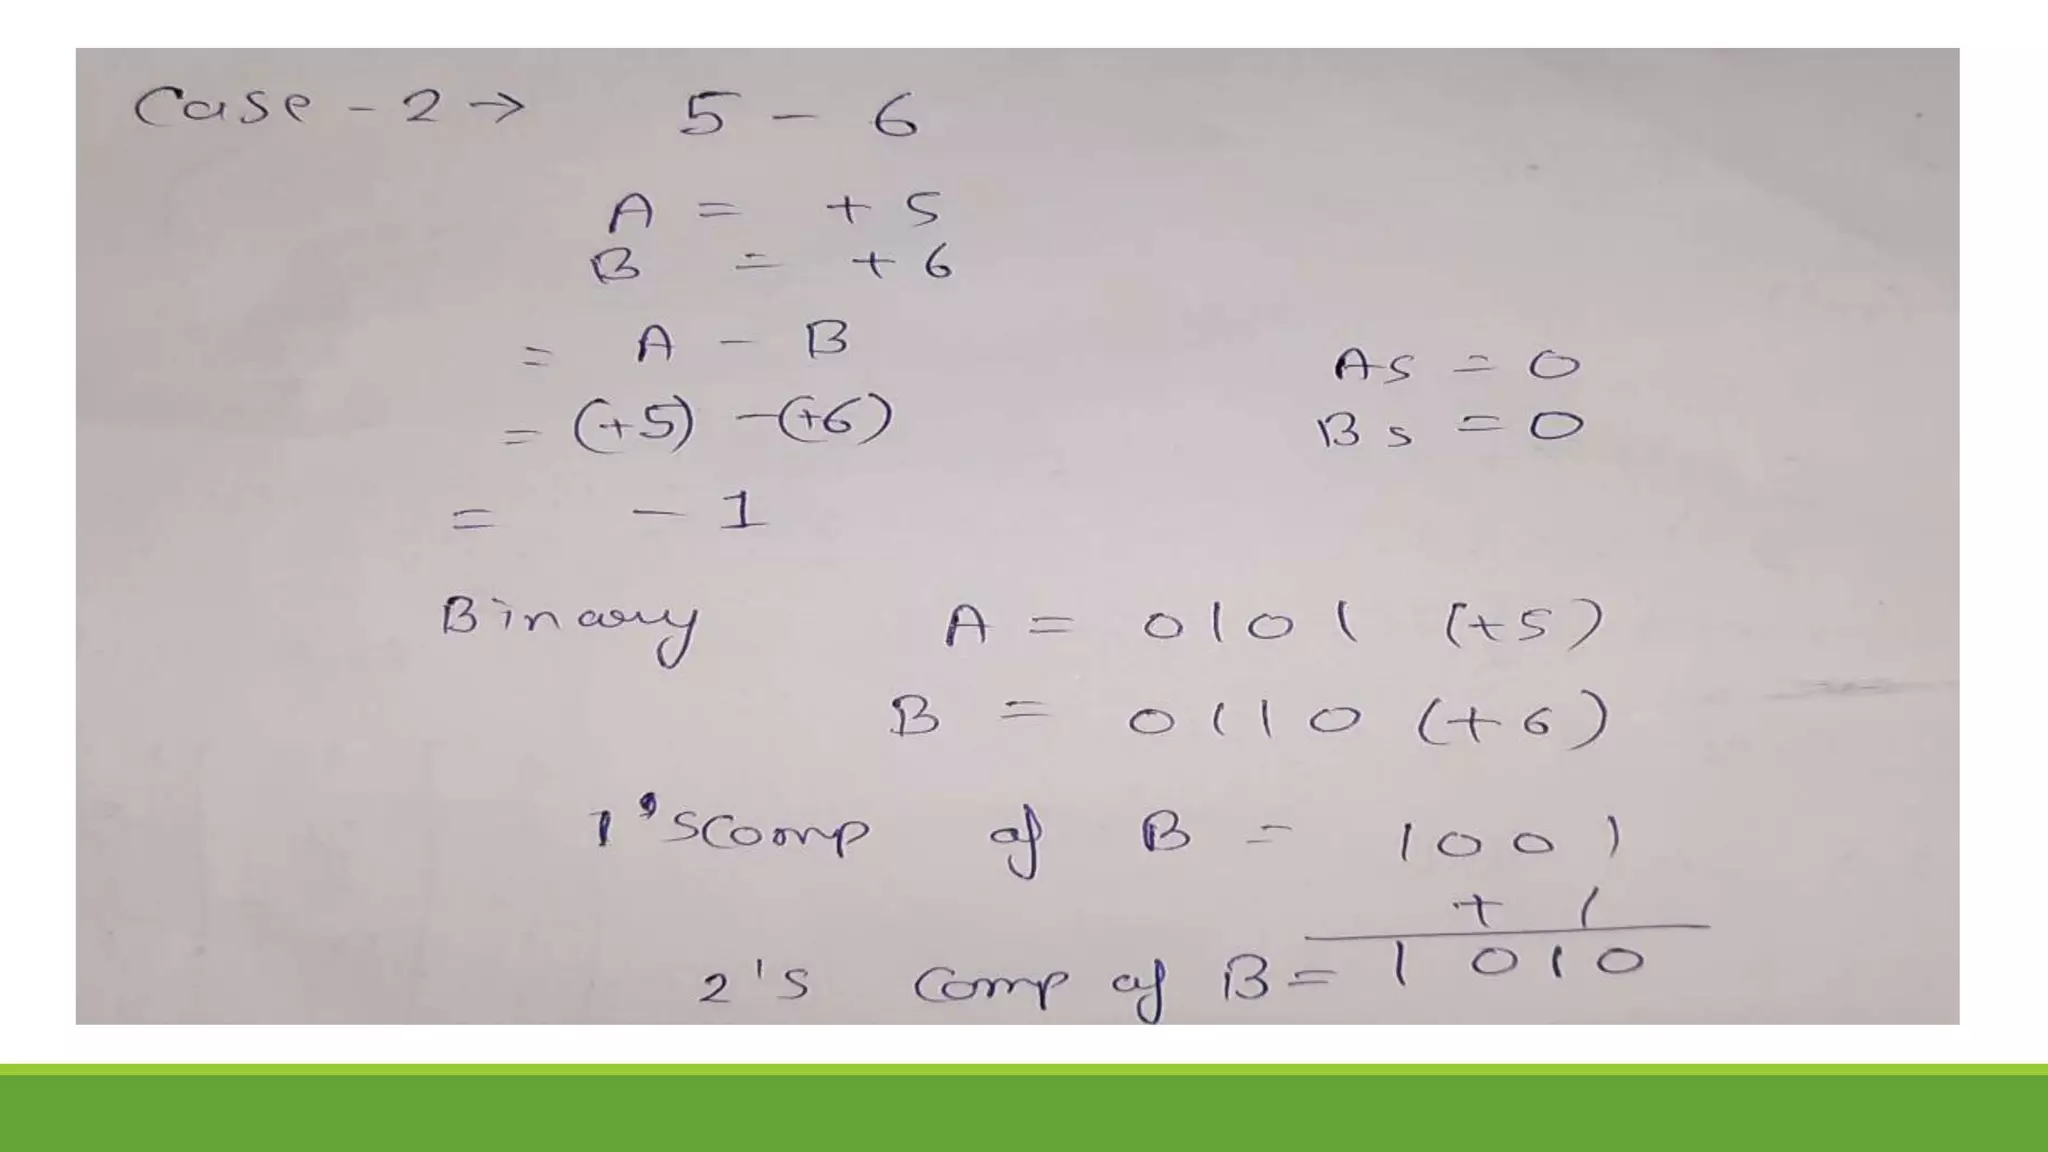 Case - 2 → 5 - 6
A = + 5
B = + 6
= A - B
As = 0
= (+5) -(+6)
Bs = 0
= - 1
Binary A = 0101 (+5)
B = 0110 (+6)
1's comp of B = 1001
+ 1
2's comp of B = 1010